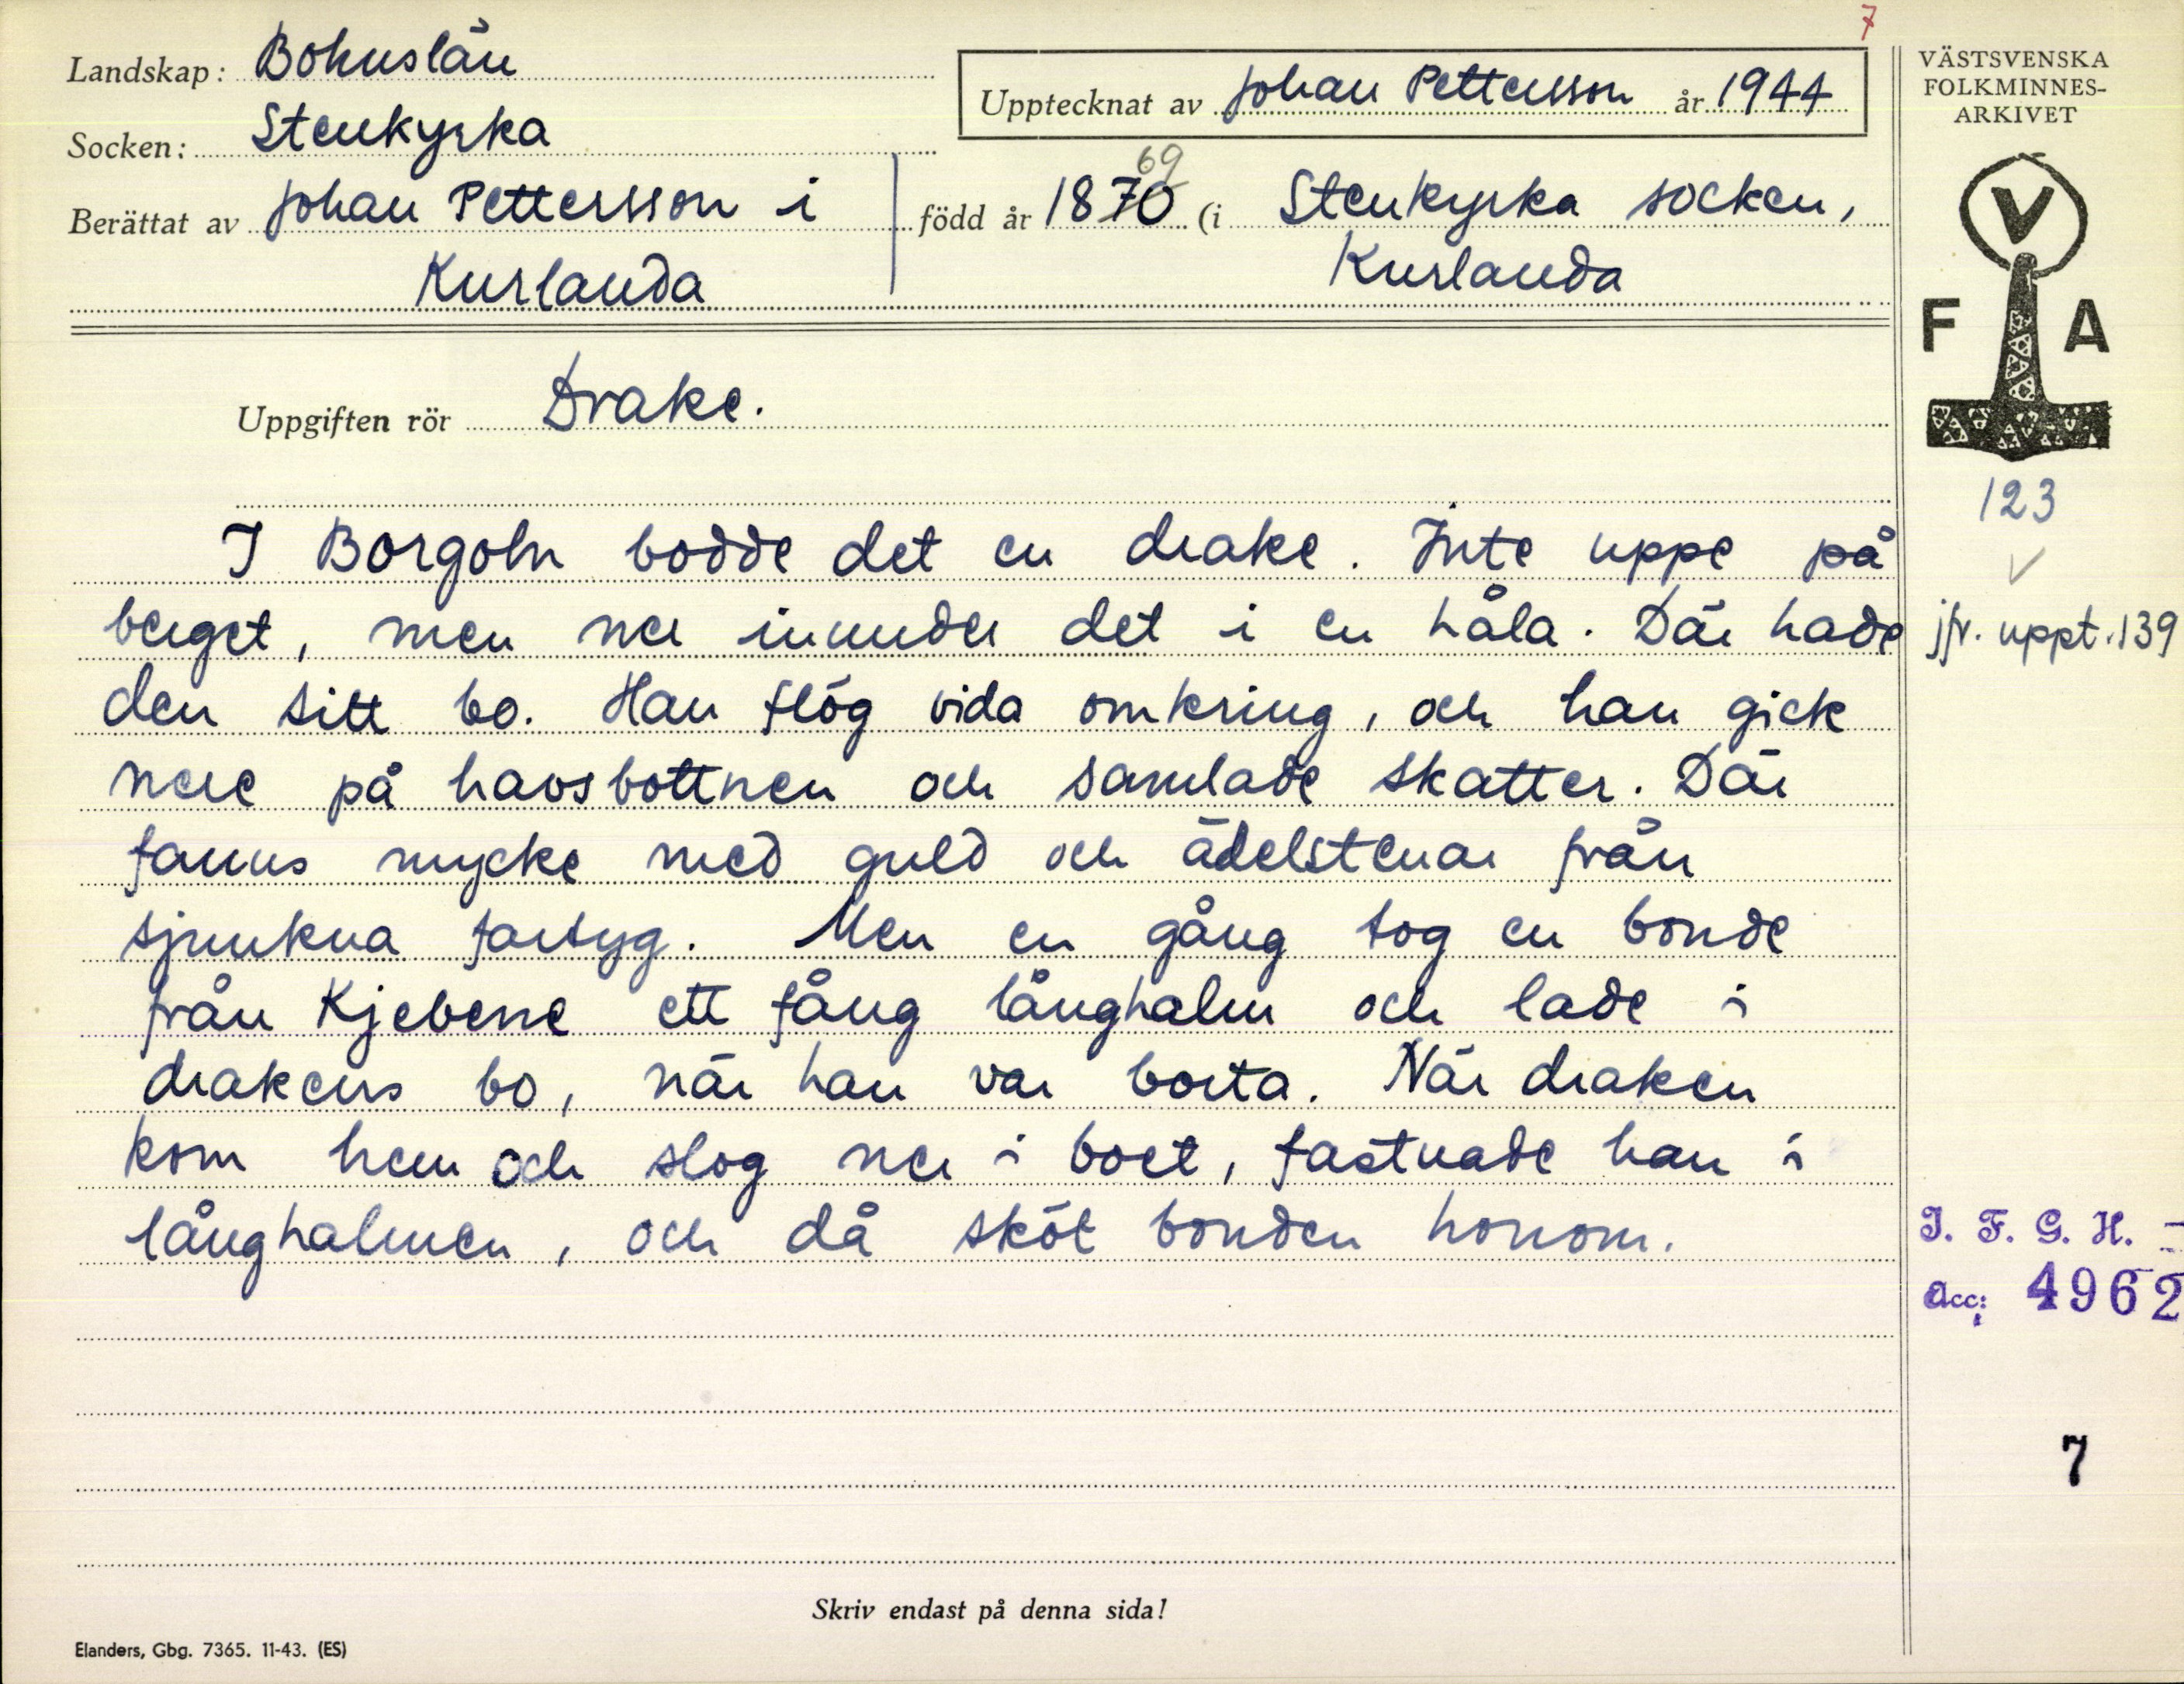 7
Landskap: Bohuslän
Upptecknat av Johan Pettersson år 1944
Socken: Stenkyrka
69
Berättat av Johan Pettersson i
född år 1870 (i Stenkyrka socken,
Kurlanda
Kurlanda
VÄSTSVENSKA
FOLKMINNES-
ARKIVET
V
F A
Uppgiften rör Drake.
123
I Borgoln bodde det en drake. Inte uppe på
berget, men ner inunder det i en håla. Där hade
jfr. uppt. 139
den sitt bo. Han flög vida omkring, och han gick
nere på havsbottnen och samlade skatter. Där
fanns mycke med guld och ädelstenar från
sjunkna fartyg. Men en gång tog en bonde
från Kjebene ett fång långhalm och lade i
drakens bo, när han var borta. När draken
kom hem och slog ner i boet, fastnade han i
långhalmen, och då sköt bonden honom.
I. F. G. H.
Acc: 4962
7
Skriv endast på denna sida!
Elanders, Gbg. 7365. 11-43. (ES)